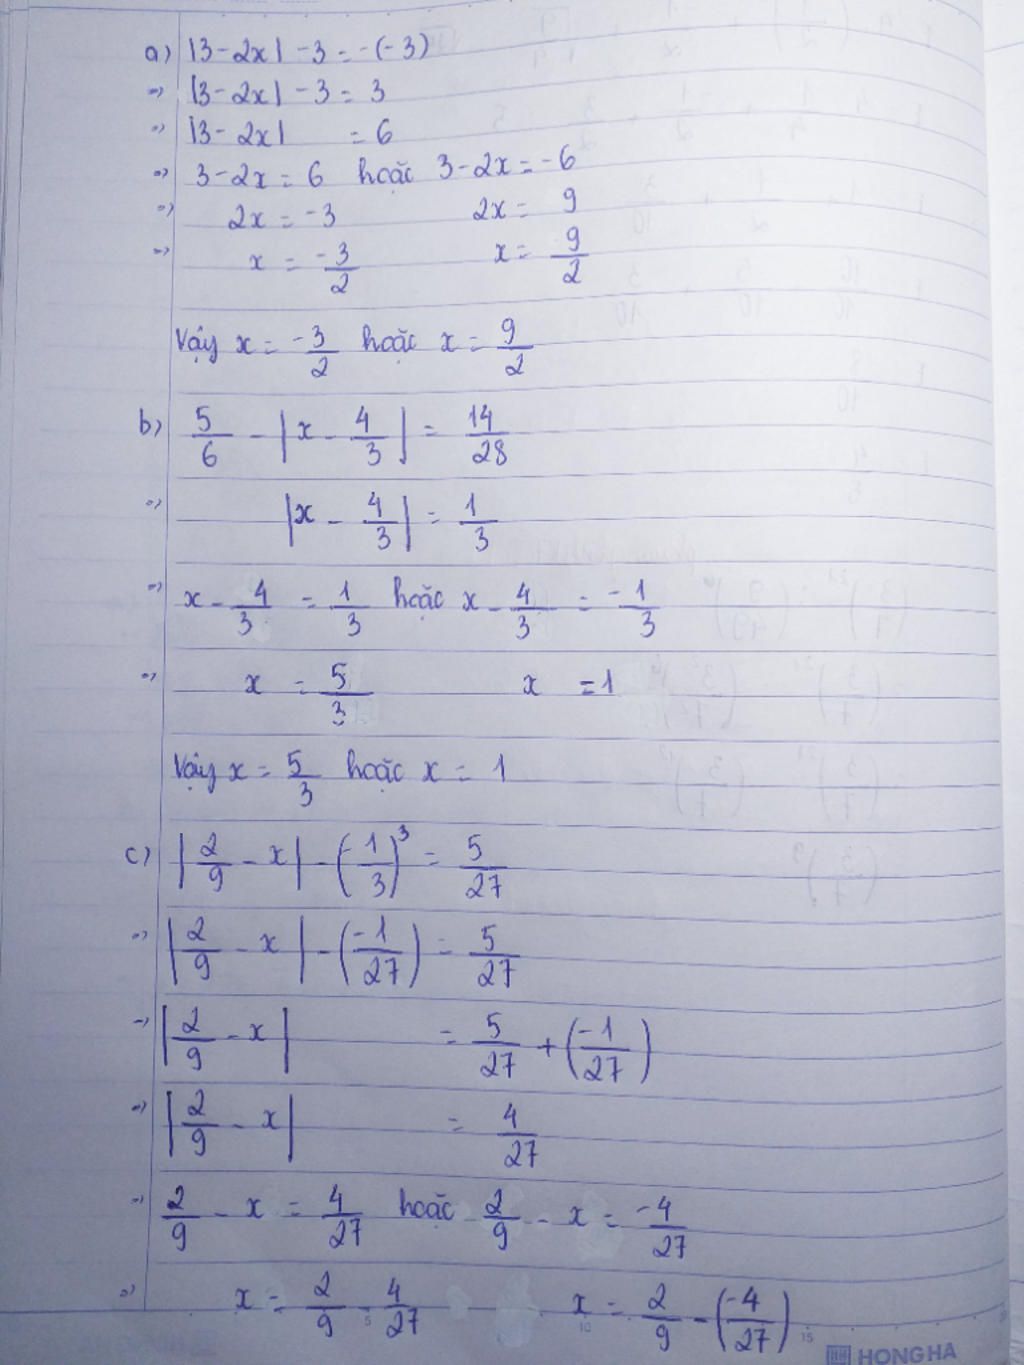 a) |3 - 2x| - 3 = -(-3)
=> |3 - 2x| - 3 = 3
=> |3 - 2x| = 6
=> 3 - 2x = 6 hoặc 3 - 2x = -6
=> 2x = -3 2x = 9
=> x = -3/2 x = 9/2
Vậy x = -3/2 hoặc x = 9/2
b) 5/6 - |x - 4/3| = 14/28
=> |x - 4/3| = 1/3
=> x - 4/3 = 1/3 hoặc x - 4/3 = -1/3
=> x = 5/3 x = 1
Vậy x = 5/3 hoặc x = 1
c) |2/9 - x| - (-1/3)³ = 5/27
=> |2/9 - x| - (-1/27) = 5/27
=> |2/9 - x| = 5/27 + (-1/27)
=> |2/9 - x| = 4/27
=> 2/9 - x = 4/27 hoặc 2/9 - x = -4/27
=> x = 2/9 - 4/27 x = 2/9 - (-4/27)
5 10 15
HONG HA